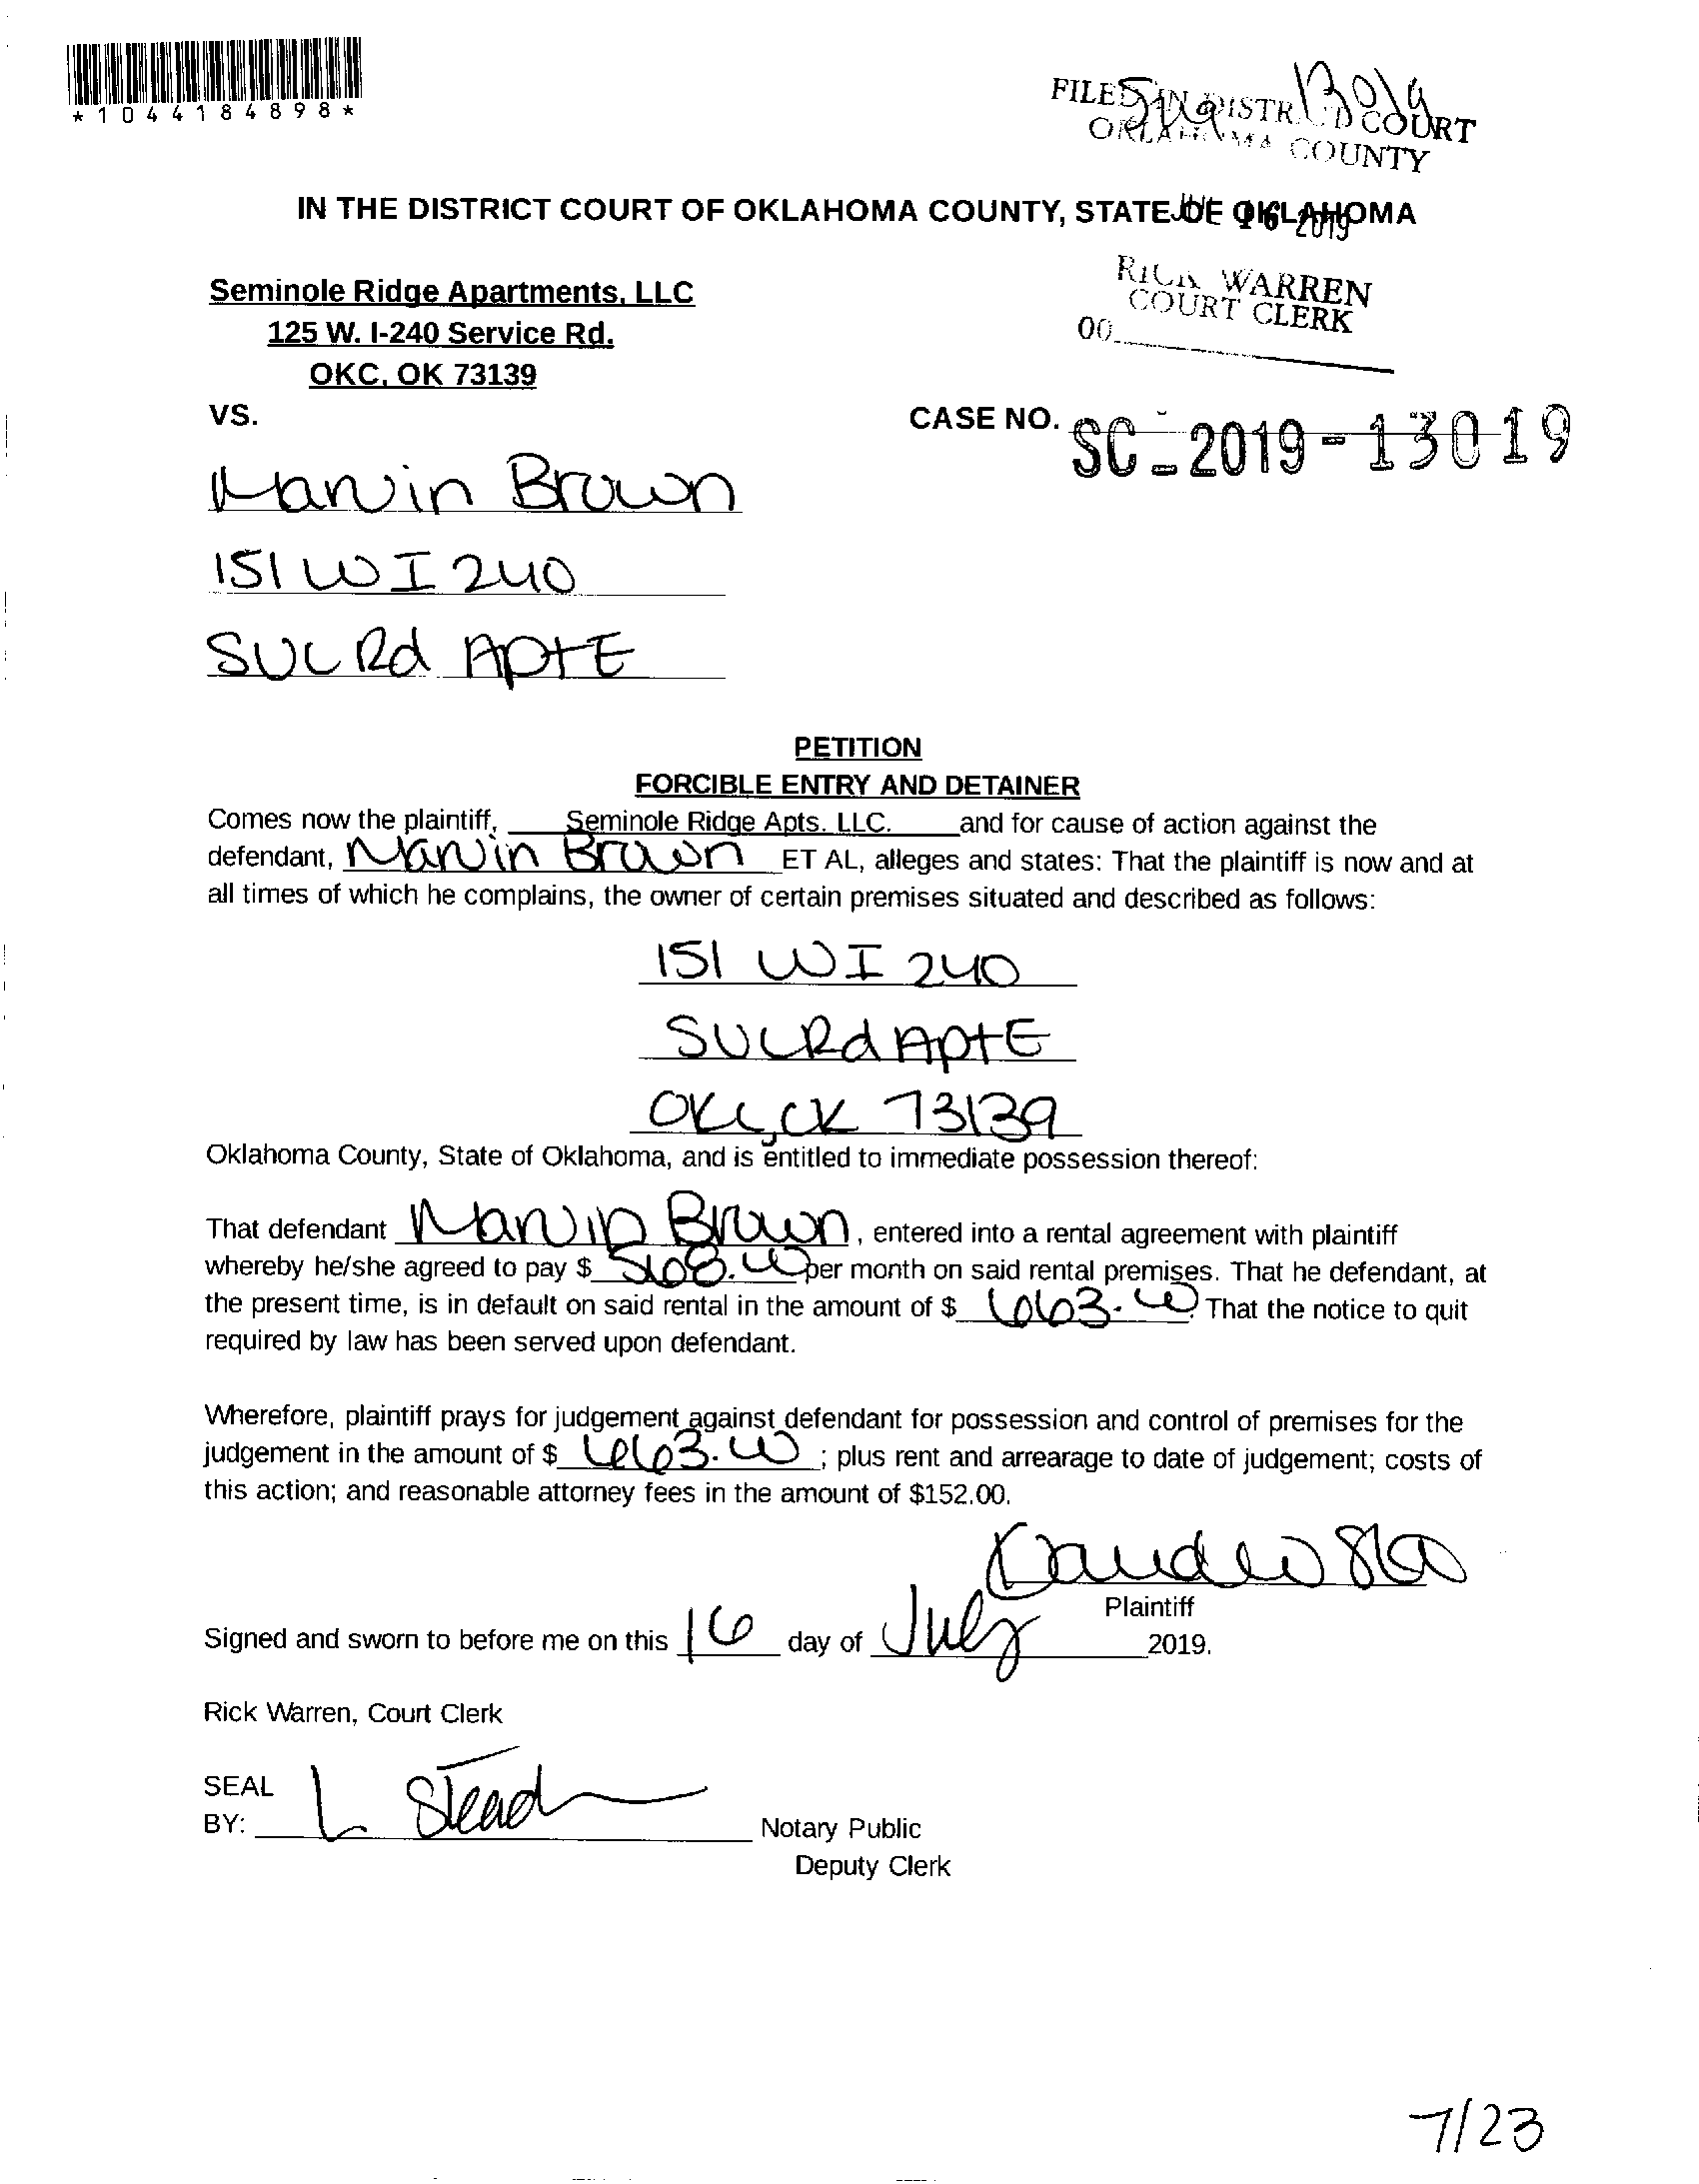 *1044184898*
FILED IN DISTRICT COURT
OKLAHOMA COUNTY
IN THE DISTRICT COURT OF OKLAHOMA COUNTY, STATE OF OKLAHOMA
JUL 16 2019
Seminole Ridge Apartments, LLC
RICK WARREN
COURT CLERK
125 W. I-240 Service Rd.
00
OKC, OK 73139
VS.
CASE NO. SC-2019-13019
Marvin Brown
151 W I 240
SVC Rd Apt E
PETITION
FORCIBLE ENTRY AND DETAINER
Comes now the plaintiff, Seminole Ridge Apts. LLC. and for cause of action against the
defendant, Marvin Brown ET AL, alleges and states: That the plaintiff is now and at
all times of which he complains, the owner of certain premises situated and described as follows:
151 W I 240
SVC Rd Apt E
OKC, OK 73139
Oklahoma County, State of Oklahoma, and is entitled to immediate possession thereof:
That defendant Marvin Brown, entered into a rental agreement with plaintiff
whereby he/she agreed to pay $ per month on said rental premises. That he defendant, at
the present time, is in default on said rental in the amount of $ 663.00. That the notice to quit
required by law has been served upon defendant.
Wherefore, plaintiff prays for judgement against defendant for possession and control of premises for the
judgement in the amount of $ 663.00; plus rent and arrearage to date of judgement; costs of
this action; and reasonable attorney fees in the amount of $152.00.
Plaintiff
Signed and sworn to before me on this 16 day of July 2019.
Rick Warren, Court Clerk
SEAL
BY: L Stead
Notary Public
Deputy Clerk
7/23